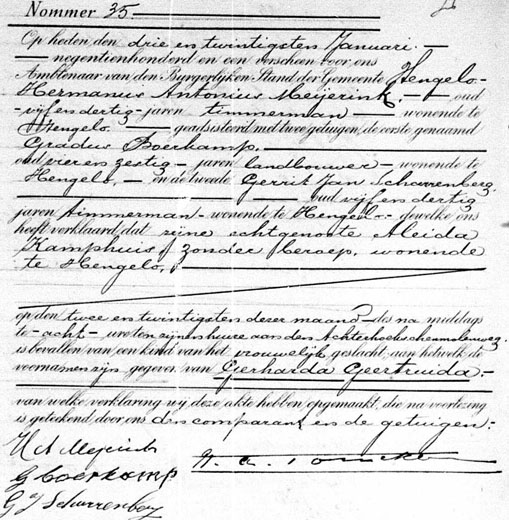 Nommer 35.
Op heden den drie en twintigsten Januari.
negentienhonderd en een verscheen voor ons
Ambtenaar van den Burgerlijken Stand der Gemeente Hengelo
Hermanus Antonius Meijerink, oud
vijf en dertig jaren timmerman wonende te
Hengelo geadsisteerd met twee getuigen, de eerste genaamd
Gradus Boerkamp,
oud vier en zestig jaren landbouwer wonende te
Hengelo, en de tweede Gerrit Jan Scharrenberg
oud vijf en dertig
jaren timmerman wonende te Hengelo dewelke ons
heeft verklaard, dat zijne echtgenoote Aleida
Kamphuis, zonder beroep, wonende
te Hengelo,
op den twee en twintigsten dezer maand des na middags
te acht ure ten zijnen huize aan den
is bevallen van een kind van het vrouwelijk geslacht, aan hetwelk de
voornamen zijn gegeven van Gerharda Geertruida.
van welke verklaring wij deze akte hebben opgemaakt, die na voorlezing
is geteekend door ons den comparant en de getuigen.
H A Meijerink
G Boerkamp
G J Scharrenberg